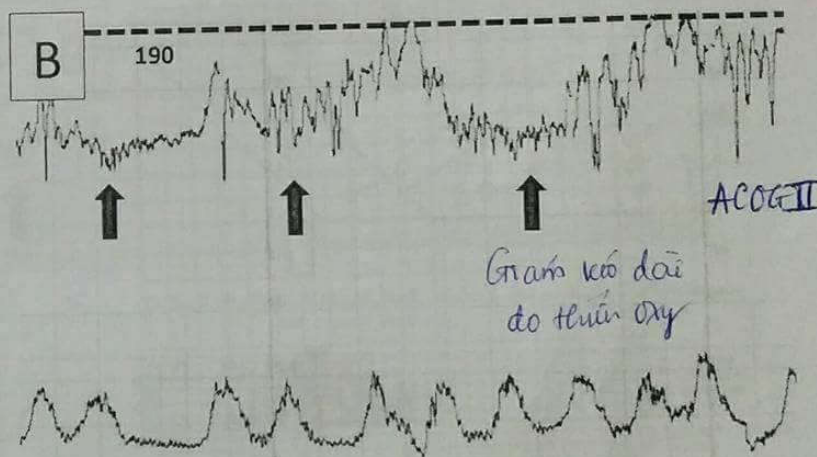 B
190
ACOG II
Giảm kéo dài
do thiếu oxy